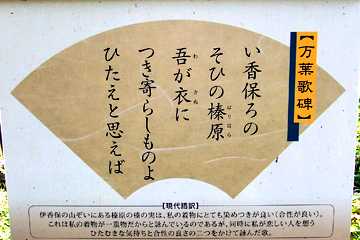 【万葉歌碑】
い香保ろの
そひの榛原
吾が衣に
つき寄らしものよ
ひたえと思えば
はりはら
わ
きぬ
【現代語訳】
伊香保の山ぞいにある榛原の榛の実は、私の着物にとても染めつきが良い(合性が良い)。
これは私の着物が一重物だからと詠んでいるのであるが、同時に私が恋しい人を想う
ひたむきな気持ちと合性の良さの二つをかけて詠んだ歌。